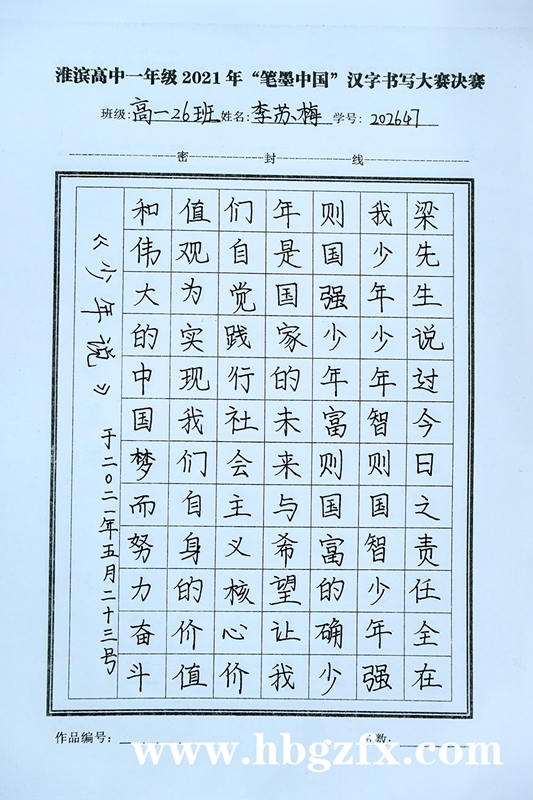 淮滨高中一年级 2021 年 “笔墨中国” 汉字书写大赛决赛
班级:高一26班姓名:李苏梅学号:202647
密 封 线
梁先生说过今日之责任全在
我少年少年智则国智少年强
则国强少年富则国富的确少
年是国家的未来与希望让我
们自觉践行社会主义核心价
值观为实现我们自身的价值
和伟大的中国梦而努力奋斗
《少年说》
于二〇二一年五月二十三号
作品编号:
数:
www.hbgzfx.com